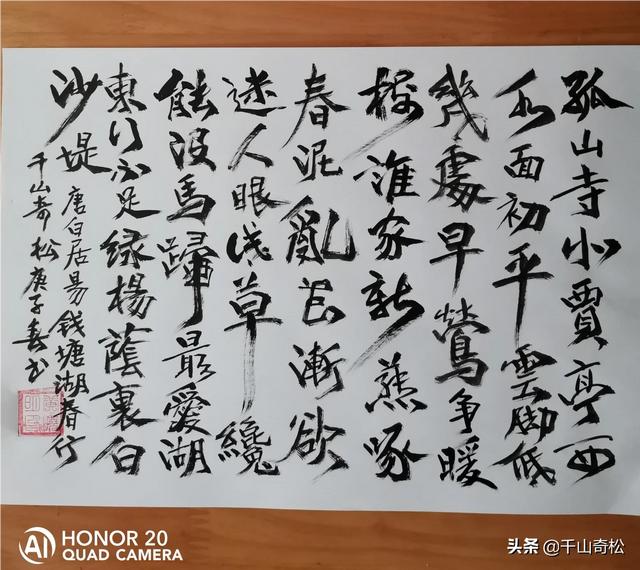 孤山寺北賈亭西
水面初平雲脚低
幾處早鶯争暖
樹誰家新燕啄
春泥亂花漸欲
迷人眼浅草纔
能没馬蹄最愛湖
東行不足緑楊蔭裏白
沙堤 唐白居易錢塘湖春行
千山奇松庚子春书
HONOR 20
AI QUAD CAMERA
头条 @千山奇松